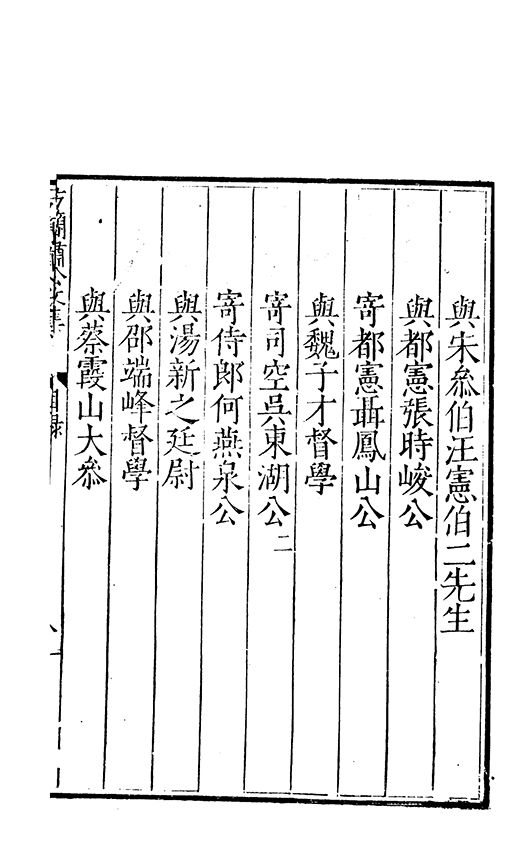 與朱叅伯汪憲伯二先生
與都憲張時峻公
寄都憲聶鳳山公
與魏子才督學
寄司空吳東湖公二
寄侍郎何燕泉公
與湯新之廷尉
與邵端峰督學
與蔡霞山大叅
簡肅公文集
目錄